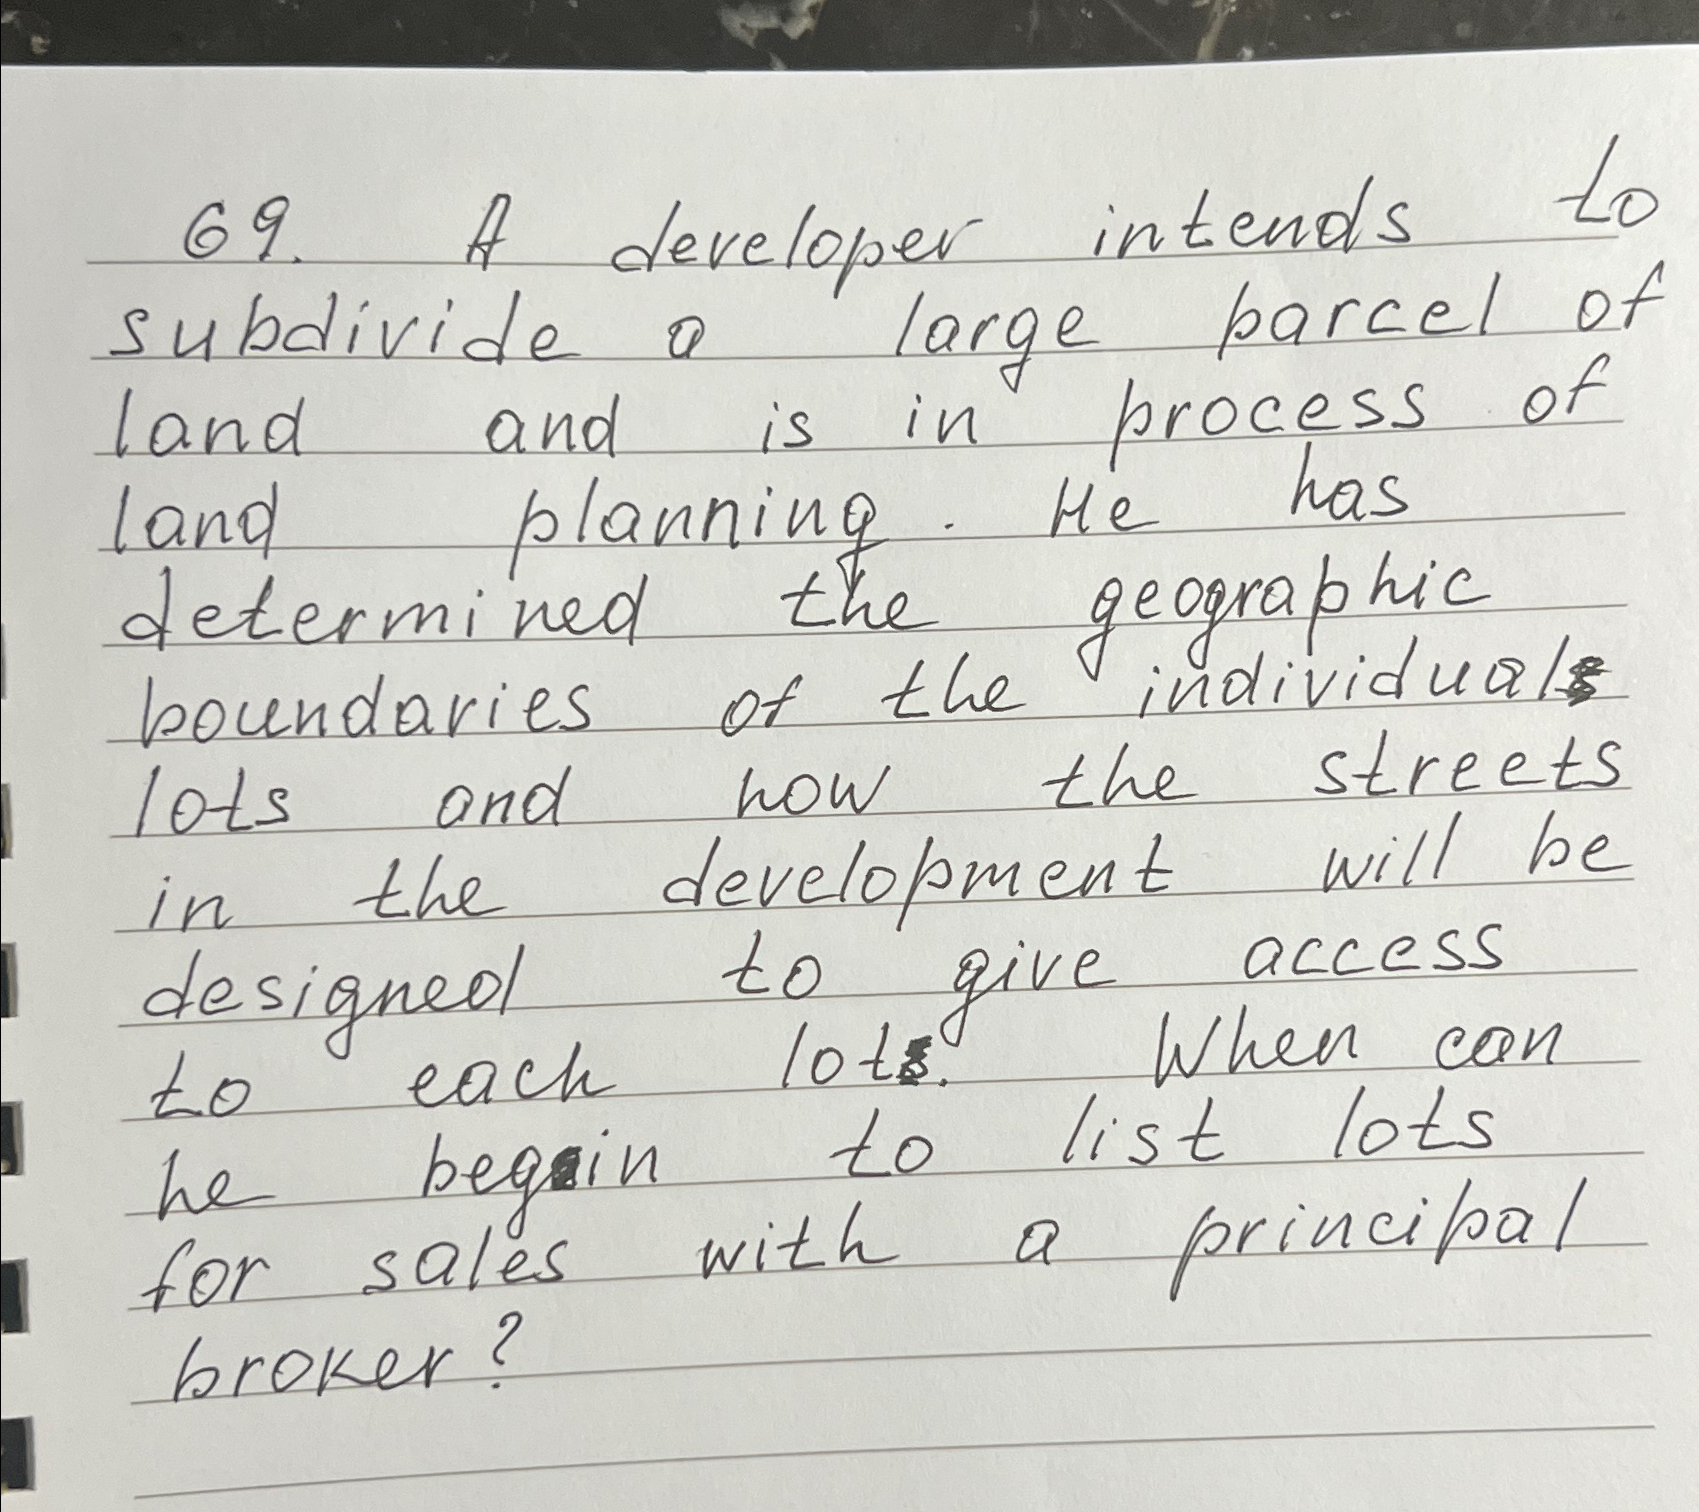 69. A developer intends to
subdivide a large parcel of
land and is in process of
land planning. He has
determined the geographic
boundaries of the individual
lots and how the streets
in the development will be
designed to give access
to each lot.  When can
he begin to list lots
for sales with a principal
broker?